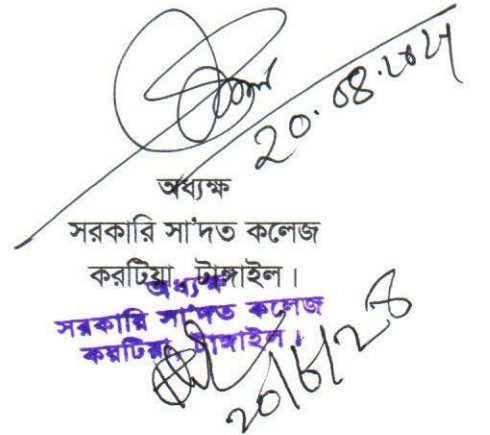 20.08.2024
অধ্যক্ষ
সরকারি সা'দত কলেজ
করটিয়া, টাঙ্গাইল।
অধ্যক্ষ
সরকারি সা'দত কলেজ
করটিয়া, টাঙ্গাইল।